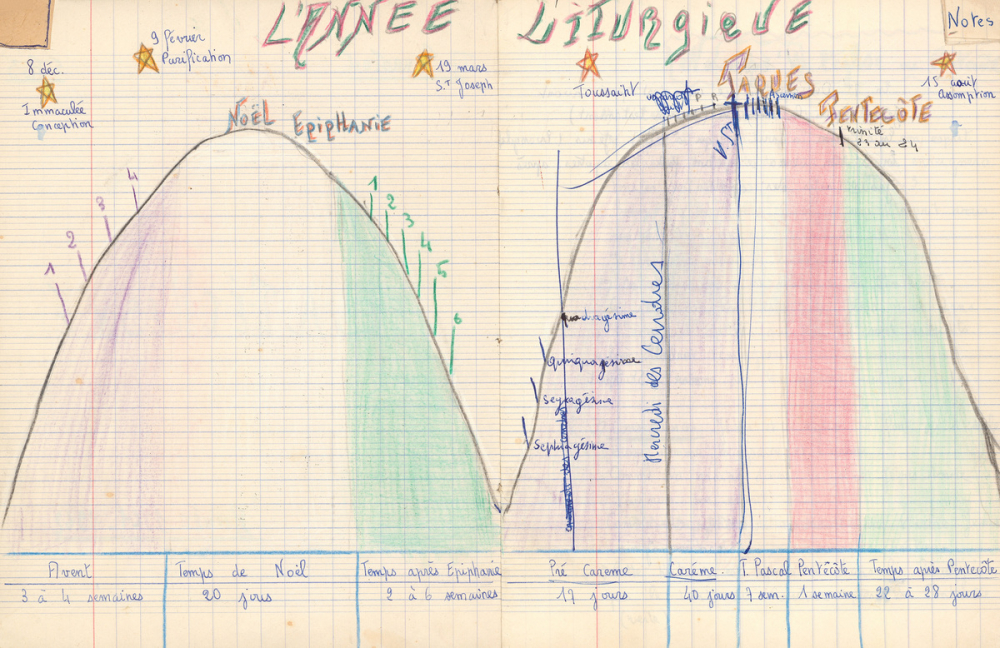 L'ANNEE LITURGIQUE
Notes
8 déc.
Immaculée
Conception
9 février
Purification
19 mars
S.T Joseph
Toussaint
15 août
Assomption
Noël
Epiphanie
PÂQUES
Ascension
PENTECÔTE
trinité
23 au 24
1
2
3
4
1
2
3
4
5
6
V ST
P
R
quadragésime
quinquagésime
sexagésime
Septuagésime
Mercredi des Cendres
Avent
3 à 4 semaines
Temps de Noël
20 jours
Temps après Epiphanie
2 à 6 semaines
Pré Careme
17 jours
Carême.
40 jours
T. Pascal
7 sem.
Pentêcôte
1 semaine
Temps après Pentecôte
22 à 28 jours